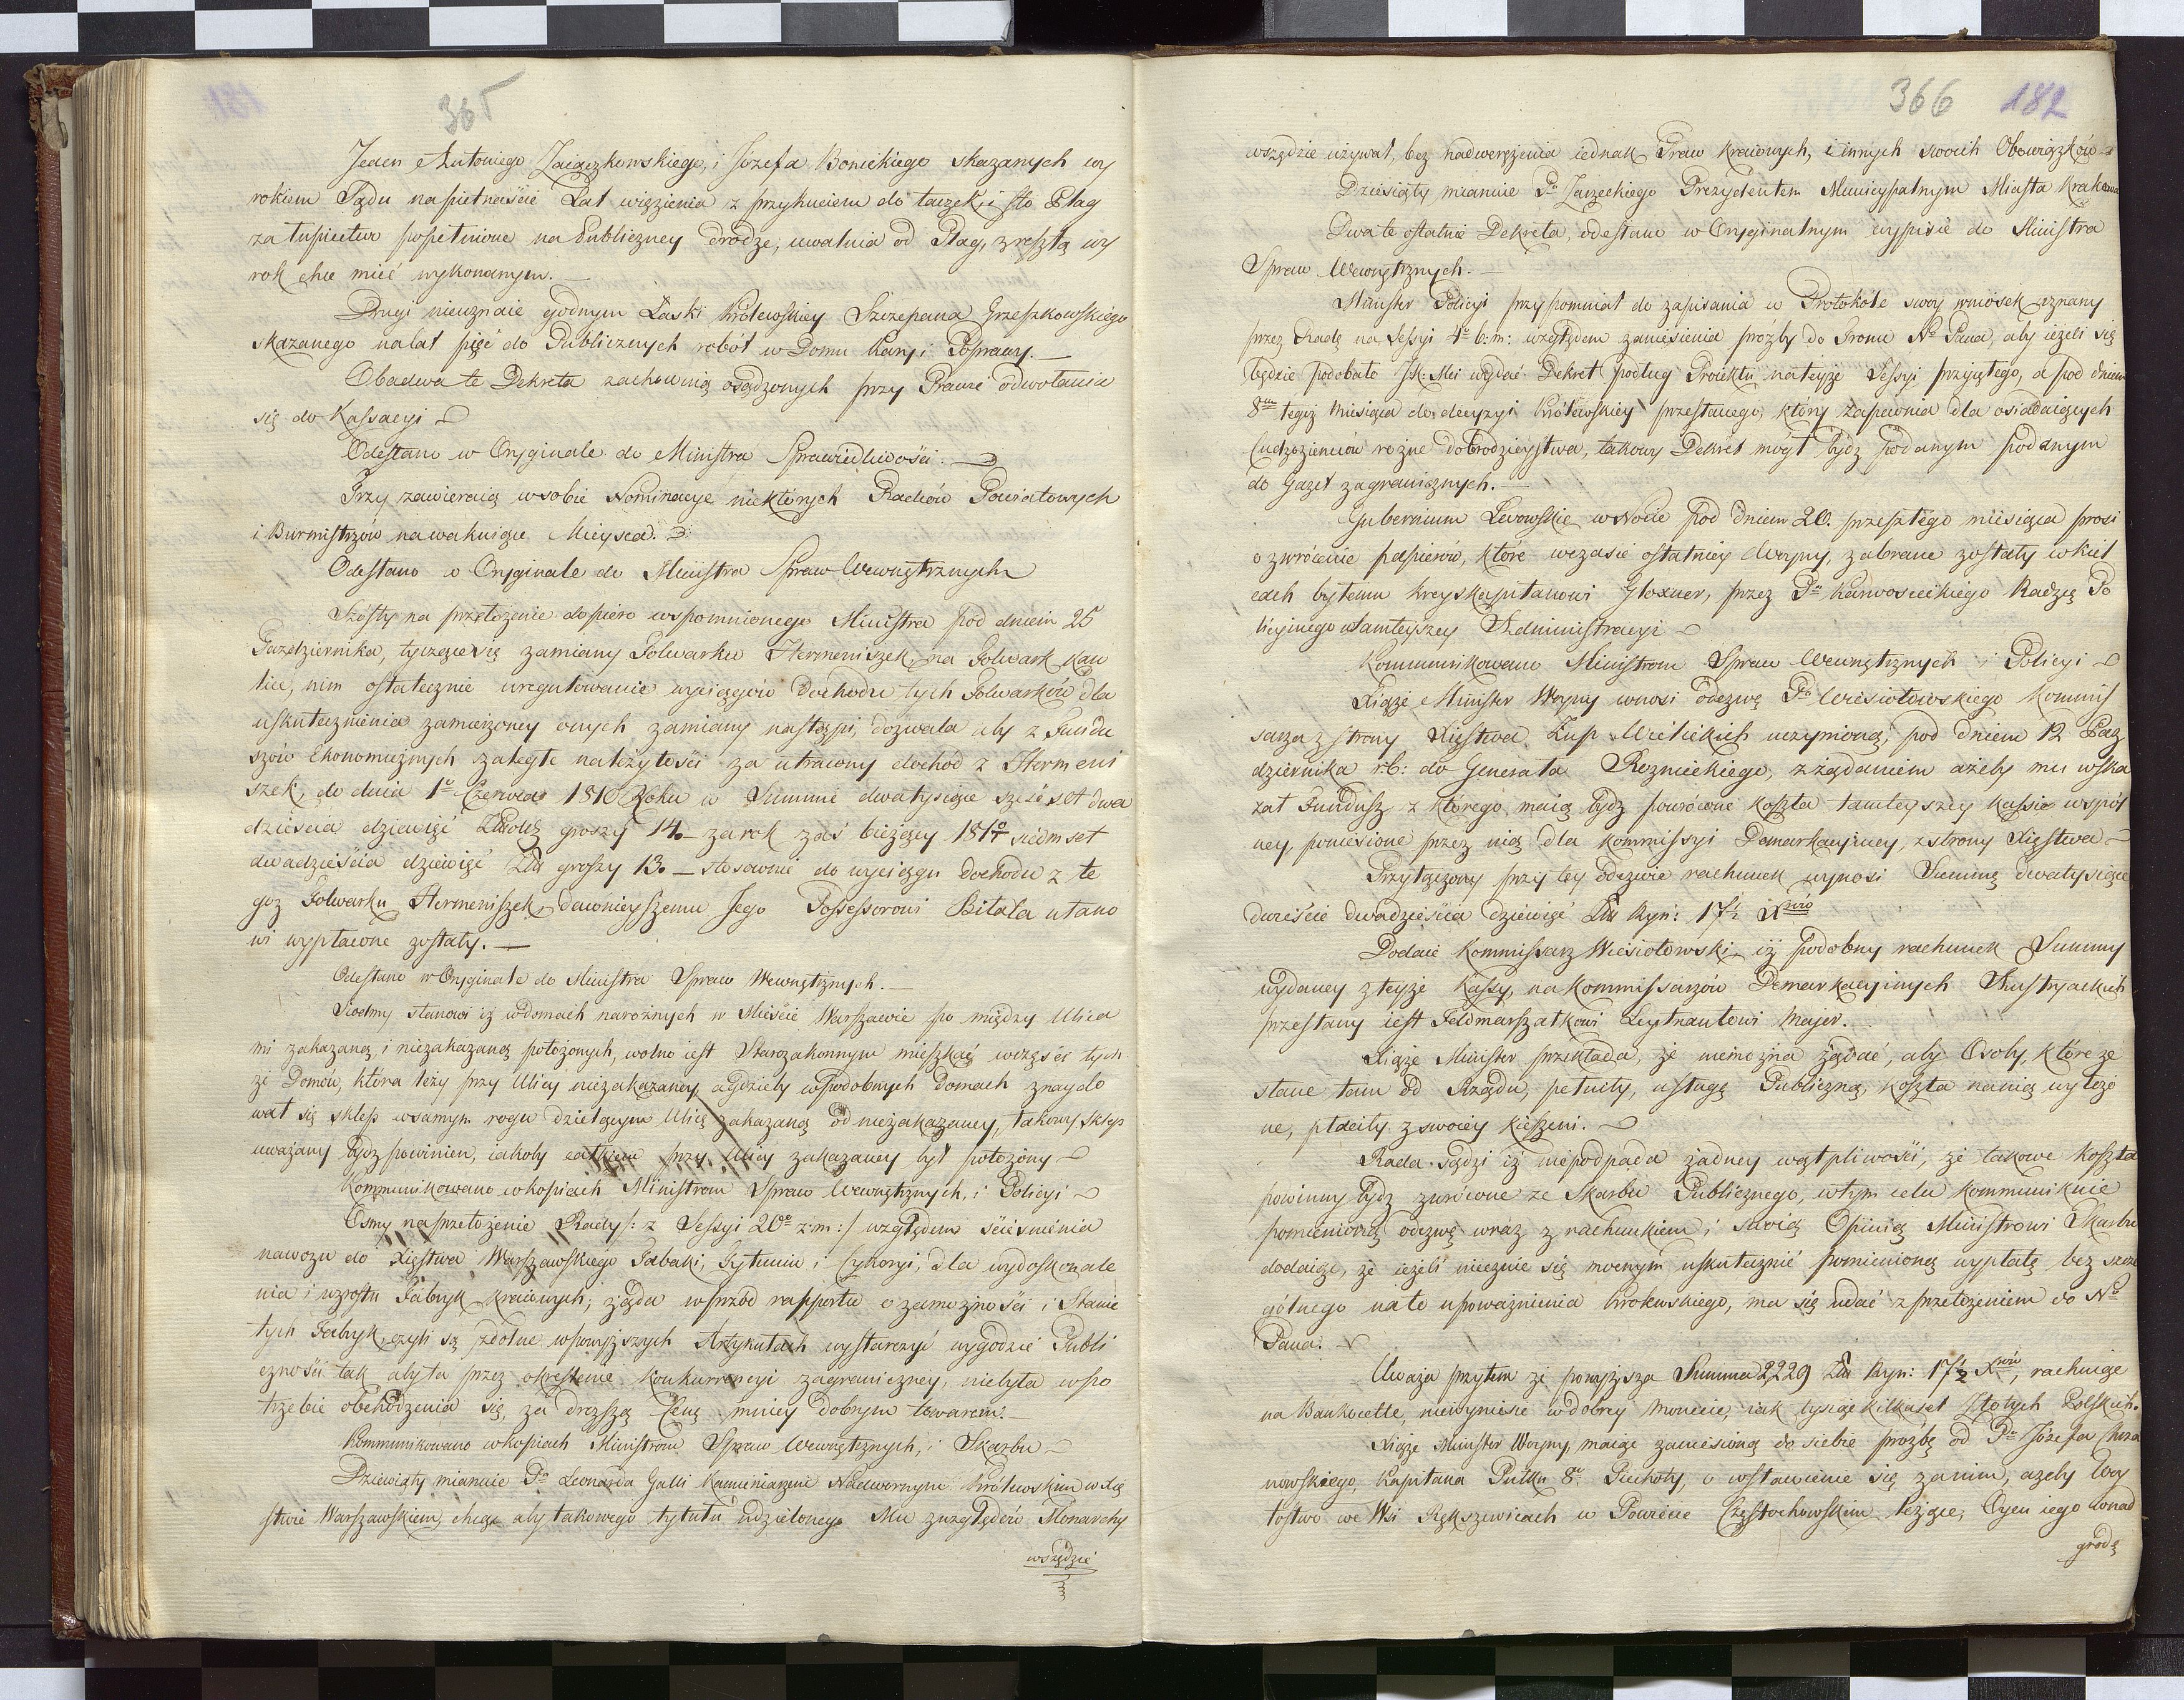 365
Jeden Antoniego Zaiączkowskiego, i Józefa Bonickiego skazanych wy
rokiem Sądu na pietnaście Lat więzienia z przykuciem do taczek, i sto Plag
za łupiectwo popełnione na Publiczney drodze, uwalnia od Plag, zresztą wy
rok chce mieć wykonanym. —
Drugi nieuznaie godnym Łaski Królewskiey Szczepana Grzeszkowskiego
skazanego na lat pięć do Publicznych robót w Domu Kary i Poprawy. —
Obadwa te Dekreta zachowuią osądzonych przy Prawie odwołania
się do Kassacyi
Odesłano w Oryginale do Ministra Sprawiedliwości. —
Trzy zawieraią w sobie Nominacye niektórych Radców Powiatowych
i Burmistrzów na wakuiące Mieysca.
Odesłano w Oryginale do Ministra Spraw Wewnętrznych
Szósty na przełożenie dopiero wspomnionego Ministra pod dniem 25
Października, tyczące się zamiany Folwarku Hermeniszek, na Folwark Kaw
lice, nim ostatecznie uregulowanie wyciągów Dochodu tych Folwarków dla
uskutecznienia zamierzoney onych zamiany nastąpi, dozwala aby z Fundu
szów Ekonomicznych zaległe należytości za utracony dochod z Hermeni
szek, do dnia 1o Czerwca 1810 Roku w Summie dwa tysiące sześćset dwa
dzieścia dziewięć Złotych groszy 14. — za rok zaś bieżący 181 siedmset
dwadzieścia dziewięć Złł groszy 13. — stosownie do wyciągu dochodu z te
goż Folwarku Hermeniszek, dawnieyszemu Jego Possessorowi Bitała utano
wi wypłacone zostały. —
Odesłano w Oryginale do Ministra Spraw Wewnętrznych. —
Siodmy stanowi iż w domach narożnych w Mieście Warszawie po między Ulica
mi zakazaną, i niezakazaną położonych, wolno iest Starozakonnym mieszkać w części tych
że Domów, która leży przy Ulicy niezakazaney, a gdzieby w podobnych Domach znaydo
wał się sklep w samym rogu dzielącym Ulicę zakazaną od niezakazaney, takowy sklep
uważany bydz powinien, iakoby całkiem przy Ulicy zakazaney był położony
Kommunikowano w kopiach Ministrom Spraw Wewnętrznych, i Policyi
Osmy na przełożenie Rady /: z Sessyi 20o z: m: / względem ścieśnienia
nawozu do Xięstwa Warszawskiego Tabaki, Tytuniu i Cykoryi, dla wydoskonale
nia i wzrostu Fabryk kraiowych, żąda wprzód rapportu o zamożności i Stanie
tych Fabryk, czyli są zdolne w powyższych Artykułach wystarczyć wygodzie Publi
czności tak aby ta przez określenie konkurrencyi zagraniczney, nie była w po
trzebie obchodzenia się, za droższą Cenę mniey dobrym towarem. —
Kommunikowano w kopiach Ministrom Spraw Wewnętrznych, i Skarbu
Dziewiąty mianuie Pa Leonarda Galli Kamieniarzem Nadwornym Królewskim w Xię
stwie Warszawskiem, chcąc aby takowego tytułu udzielonego Mu z względów Monarchy
wszędzie
366 182
wszędzie używał, bez nadwerężenia iednak Praw kraiowych, i innych swoich Obowiązków
Dziesiąty mianuie Pa Zarzeckiego Prezydentem Municypalnym Miasta Krakowa
Dwa te ostatnie Dekreta, odesłano w Oryginalnym wypisie do Ministra
Spraw Wewnętrznych. —
Minister Policyi przypomniał do zapisania w Protokóle swoy wniosek uznany
przez Radę na Sessyi 4o b: m: względem zaniesienia prośby do Tronu No Pana, aby ieżeli się
będzie podobało JK: Mci wydać Dekret podług Proiektu na teyże Sessyi przyiętego, a pod dniem
8m tegoż Miesiąca do decyzyi Królewskiey przesłanego, który zapewnia dla osiadaiących
Cudzoziemców rożne dobrodzieystwa, takowy Dekret mógł bydz podanym podanym
do Gazet zagranicznych. —
Gubernium Lwowskie w Nocie pod dniem 20. przeszłego miesiąca prosi
o zwrócenie papierów, które w czasie ostatniey Woyny, zabrane zostały w Kiel
cach byłemu Kreyskapitanowi Gloxner, przez Pa Karwosieckiego Radzcę Po
licyinego w tamteyszey Administracyi
Kommunikowano Ministrom Spraw Wewnętrznych i Policyi
Xiąże Minister Woyny wnosi odezwę Pa Wiesiołowskiego Kommis
sarza z strony Xięstwa Żup Wielickich uczynioną, pod dniem 12 Paz
dziernika r: b: do Generała Rożnieckiego, z żądaniem ażeby mu wska
zał Fundusz z którego maią bydz powrócone koszta tamteyszey Kassie wspól
ney, poniesione przez nią dla Kommissyi Demarkacyiney, z strony Xięstwa
Przyłączony przy tey odezwie rachunek wynosi Summę dwa tysiące
dwieście dwadzieścia dziewięć Złł Ryń: 17½ Xrów
Dodaie Kommissarz Wiesiołowski, iż podobny rachunek Summy
wydaney z teyże Kassy, na Kommissarzów Demarkacyinych Austryackich
przesłany iest Feldmarszałkowi Leytnantowi Majer.
Xiąże Minister przekłada, że niemożna żądać, aby Osoby, które ze
słane tam od Rządu, pełniły, usługę Publiczną, koszta na nią wyłożo
ne, płaciły z swoiey kieszeni.
Rada sądzi iż nie podpada żadney wątpliwości, że takowe koszta
powinny bydz zwrócone ze Skarbu Publicznego, w tym celu kommunikuie
pomienioną odezwę wraz z rachunkiem i swoią Opinią Ministrowi Skarbu
dodaiąc, że ieżeli nieczuie się mocnym uskutecznić pomienioną wypłatę bez szcze
gólnego na to upoważnienia Krolewskiego, ma się udać z przełożeniem do No
Pana.
Uważa przytem że powyższa Summa 2229 Złł Ryn: 17½ Xrów, rachuiąc
na Bankocetle, niewyniesie w dobrey monecie, iak tysiąc kilkaset Złotych Polskich.
Xiąże Minister Woyny, maiąc zaniesioną do siebie prośbę od Pa Józefa Chrza
nowskiego, Kapitana Pułku 8o Piechoty, o wstawienie się za nim, ażeby Woy
tostwo we Wsi Rększewicach w Powiecie Częstochowskim leżące, Oycu iego w nad
grodę